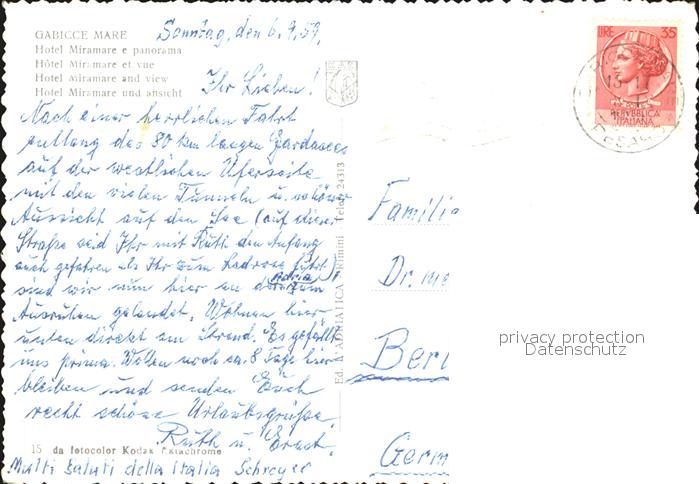 Sonntag, den 6.9.59.
GABICCE MARE
Hotel Miramare e panorama
Hôtel Miramare et vue
Hotel Miramare and view
Hotel Miramare und ansicht
Ihr Lieben!
Nach einer herrlichen Fahrt
entlang des 80 km langen Gardasees
auf der westlichen Uferseite
mit den vielen Tunneln u. schöner
Aussicht auf den See (auf dieser
Straße seid Ihr mit Ruth den Anfang
auch gefahren als Ihr zum fuhrt),
sind wir nun hier an der Adria zum
Ausruhen gelandet. Wohnen hier
unten direkt am Strand. Es gefällt
uns prima. Wollen noch ca. 8 Tage hier
bleiben und senden Euch
recht schöne Urlaubsgrüße.
Ruth u. Ernst.
15 da fotocolor Kodak Ektachrome
Multi saluti della Italia Schreyer
Ed. ADRIATICA Rimini Telef. 24313
LIRE 35
REPVBBLICA
ITALIANA
PESARO
Famili
Dr. me
Berl
Germ
privacy protection
Datenschutz